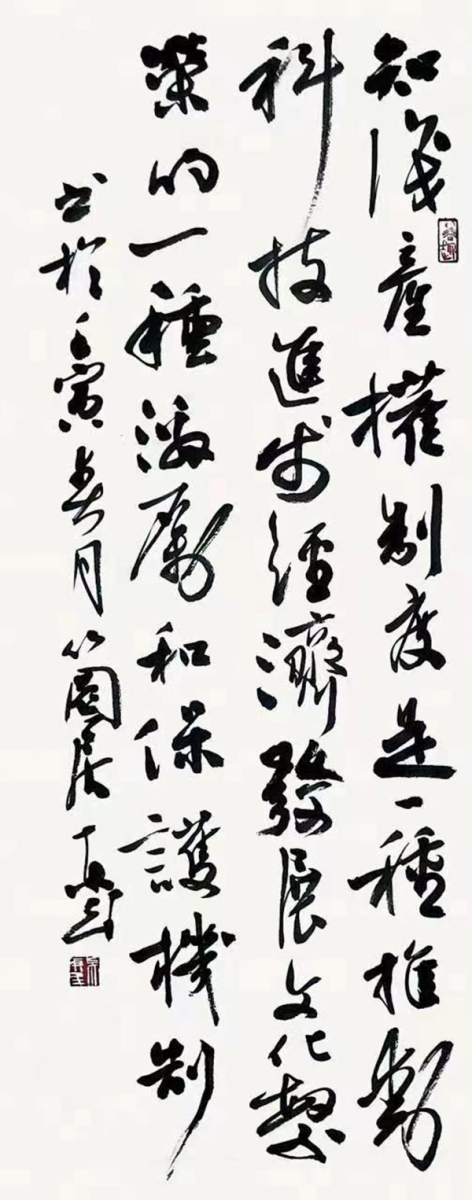 知識產權制度是一種推動
科技進步經濟發展文化繁
榮的一種激勵和保護機制
書於壬寅春月